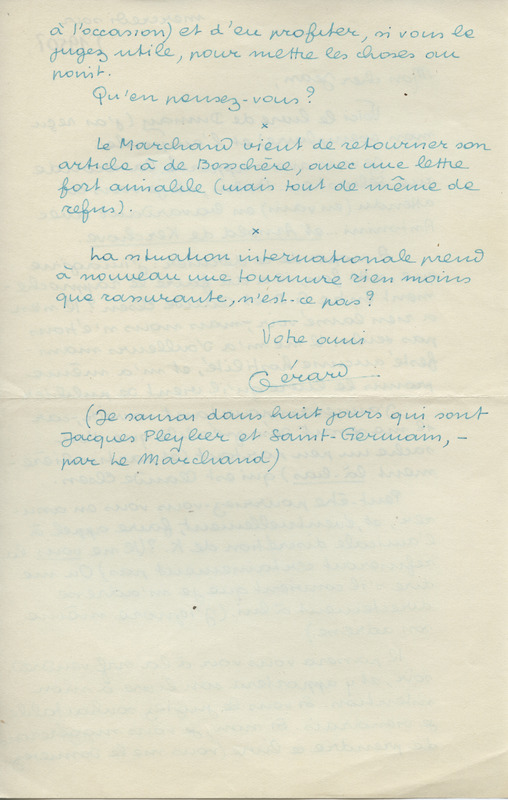 à l'occasion) et d'en profiter, si vous le
jugez utile, pour mettre les choses au
point.
Qu'en pensez-vous ?
×
Le Marchand vient de retourner son
article à de Bosschère, avec une lettre
fort aimable (mais tout de même de
refus).
×
La situation internationale prend
à nouveau une tournure rien moins
que rassurante, n'est-ce pas ?
Votre ami
Gérard
(Je saurai dans huit jours qui sont
Jacques Pleyber et Saint-Germain, –
par Le Marchand)